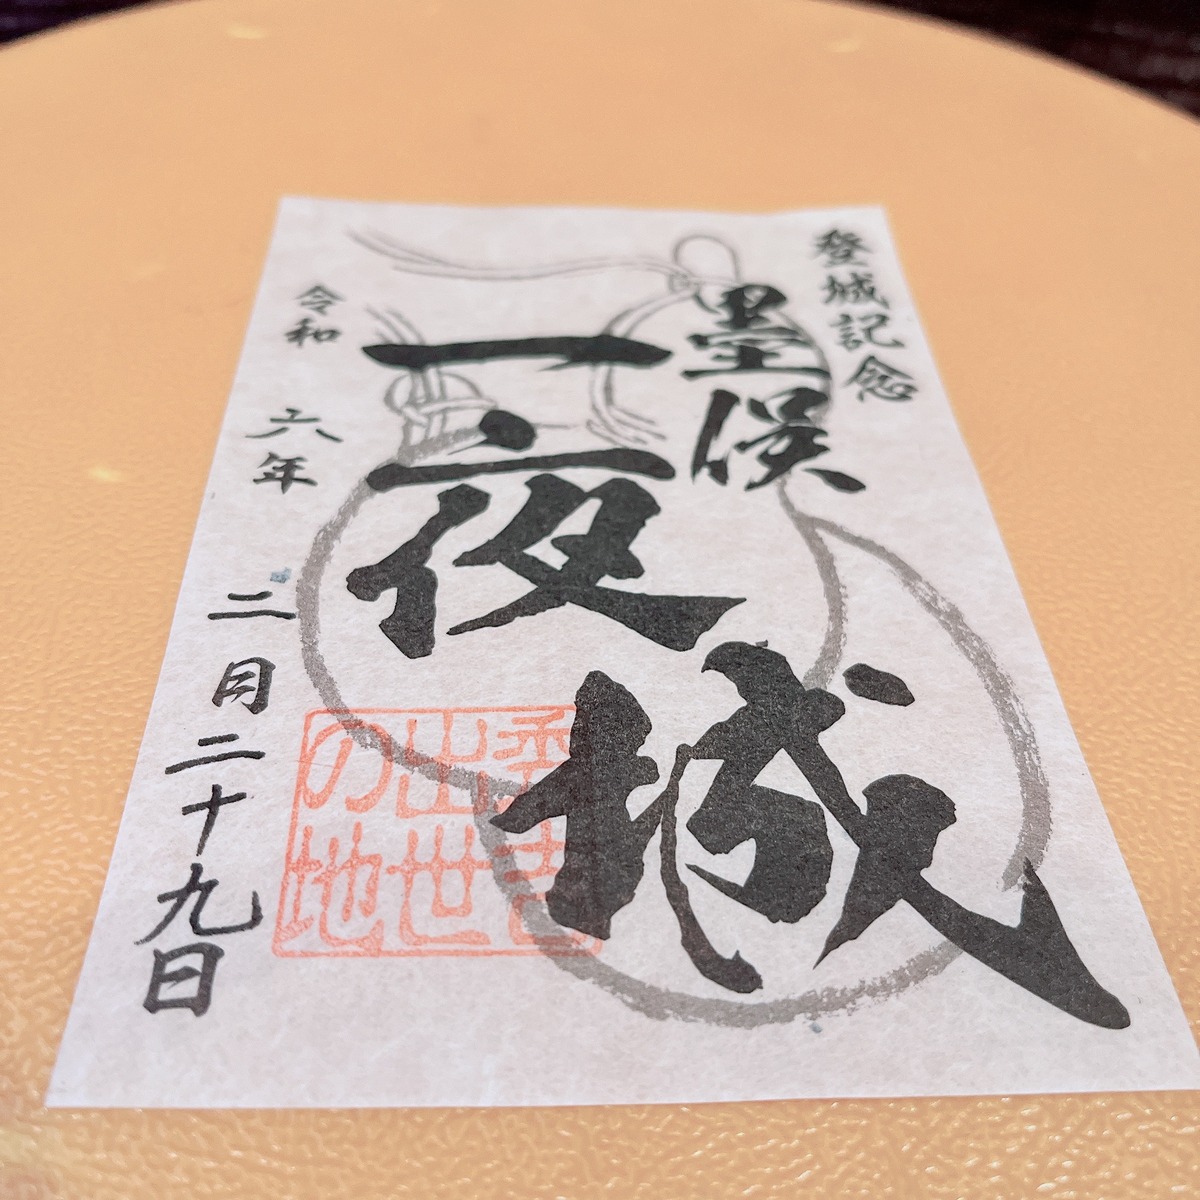 登城記念
墨俣
一夜城
令和 六年 二月二十九日
秀吉
出世
の地